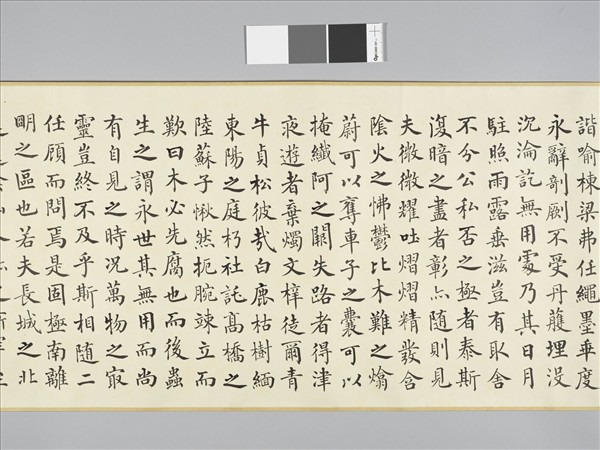 諧喻棟梁弗任繩墨乖度
永辭剞劂不受丹雘埋没
沉淪詎無用處乃其日月
駐照雨露垂滋豈有取舍
不分公私否之極者泰斯
復暗之盡者彰亦随則見
夫微微耀吐熠熠精發含
陰火之怫鬱比木難之熻
蔚可以奪車子之囊可以
掩纖阿之闕失路者得津
夜遊者棄燭文梓徒爾青
牛貞松彼哉白鹿枯樹緬
東陽之庭朽社詫髙橋之
陸蘇子愀然扼腕竦立而
歎曰木必先腐也而後蟲
生之謂永世其無用而尚
有自見之時况萬物之㝡
靈豈終不及乎斯相随二
任顧而問焉是固極南離
明之區也若夫長城之北